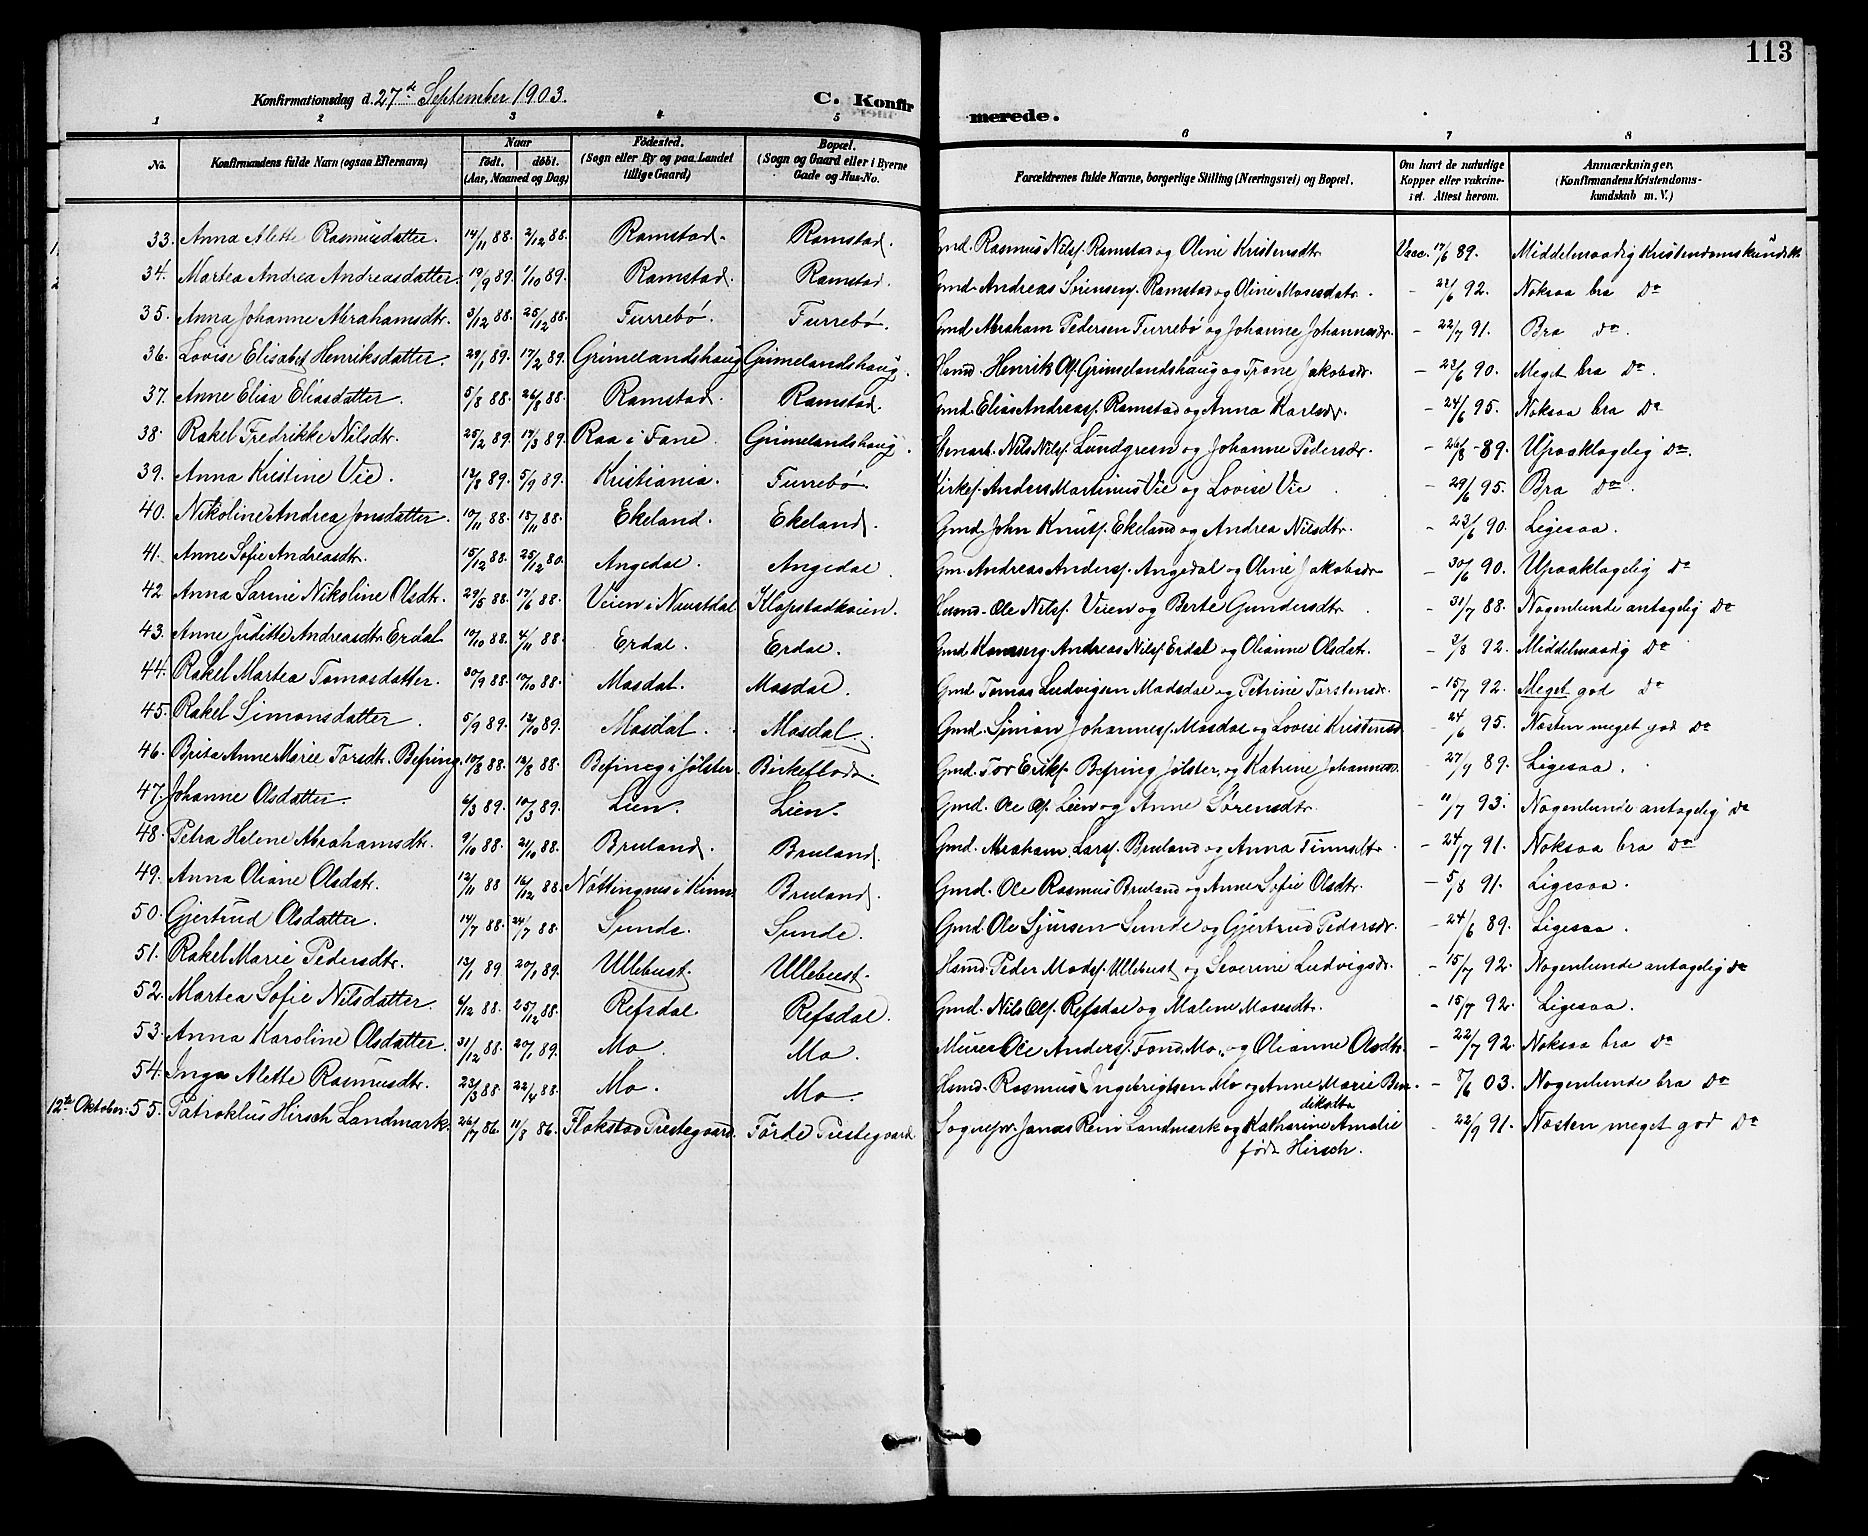 113
Konfirmationsdag d. 27de September 1903.
C. Konfirmerede.
1 2 3 4 5 6 7 8
No. Konfirmandens fulde Navn (ogsaa Efternavn) Naar født. døbt. (Aar, Maaned og Dag) Fødested. (Sogn eller By og paa Landet tillige Gaard) Bopæl. (Sogn og Gaard eller i Byerne Gade og Hus-No. Forældrenes fulde Navne, borgerlige Stilling (Næringsvei) og Bopæl. Om havt de naturlige Kopper eller vakcineret. Attest herom. Anmærkninger, (Konfirmandens Kristendomskundskab m. V.)
33. Anna Alette Rasmusdatter. 14/11 88. 2/12 88. Ramstad. Ramstad. Gmd. Rasmus Nilsf. Ramstad og Oline Kristensdtr Vacc. 17/6 89. Middelmaadig Kristendomskundsk.
34. Martea Andrea Andreasdatter. 19/9 89. 1/10 89. Ramstad. Ramstad. Gmd. Andreas Sørensen, Ramstad og Oline Mosesdatr. - 22/6 92. Noksaa bra Do
35. Anna Johanne Abrahamsdtr. 3/12 88. 25/12 88. Furrebø. Furrebø. Gmd. Abraham Pedersen Furrebø og Johanne Johannesdr. - 22/7 91. Bra do.
36. Lovise Elisabet Henriksdatter. 29/1 89. 17/2 89. Grimelandshaug Grimelandshaug. Hsmd. Henrik Olsf. Grimelandshaug og Trone Jakobsdr. - 23/6 90. Meget bra Do.
37. Anne Elisa Eliasdatter. 5/8 88. 26/8 88. Ramstad. Ramstad. Gmd. Elias Andreasf. Ramstad og Anna Karlsdr. - 24/6 95. Noksaa bra Do
38. Rakel Fredrikke Nilsdtr. 25/2 89. 17/3 89. Raa i Fane. Grimelandshaug. Stenarb. Nils Nilsf. Lundgreen og Johanne Pedersdr. - 26/8 -89. Upaaklagelig Do.
39. Anna Kristine Vie. 12/8 89. 5/9 89. Kristiania. Furrebø. Kirkes. Anders Martinus Vie og Lovise Vie - 29/6 95. Bra Do.
40. Nikoline Andrea Jonsdatter. 10/11 88. 15/11 88. Ekeland. Ekeland. Gmd. John Knutsf. Ekeland og Andrea Nilsdtr. - 23/6 90. Ligesaa.
41. Anne Sofie Andreasdtr. 15/12 88. 25/12 80. Angedal. Angedal. Gm. Andreas Andersf. Angedal og Oline Jakobsdr - 30/6 90. Upaaklagelig Do
42 Anna Sarine Nikoline Olsdtr. 29/5 88. 17/6 88. Veien i Naustdal Klopstadkaien. Husmd. Ole Nilsf. Veien og Berte Gundersdtr. - 31/7 88. Nogenlunde antagelig Do
43. Anne Juditte Andreasdtr Erdal 10/10 88. 4/11 88. Erdal. Erdal. Gmd. Andreas Nilsf. Erdal og Olianne Olsdatr. - 3/8 92. Middelmaadig Do
44. Rakel Martea Tomasdatter. 30/9 88. 17/10 88. Mosdal. Mosdal. Gmd Tomas Ludvigsen Madsdal og Petrine Torstensdr. - 15/7 92. Meget god Do
45. Rakel Simonsdatter. 5/9 89. 12/10 89. Mosdal. Mosdal. Gmd. Simon Johannesf. Mosdal og Lovise Kristensd. - 24/6 95. Næsten meget god Do
46. Brita Anne Marie Torsdtr. Befring. 10/8 88. 12/8 88. Befring i Jølster. Birkeflod. Gmd. Tor Eriksf. Befring Jølster, og Katrine Johannesd. - 27/9 89. Ligesaa.
47. Johanne Olsdatter. 4/3 89. 10/3 89. Lien. Lien. Gmd. Ole Olsf. Lien og Anne Sørensdtr. - 11/7 93. Nogenlunde antagelig Do
48. Petra Helene Abrahamsdtr. 9/10 88. 21/10 88. Bruland. Bruland. Gmd. Abraham Larsf. Bruland og Anna Finnsdtr. - 24/7 91. Noksaa bra Do
49. Anna Oliane Olsdatr. 12/11 88 16/12 88. Nottingnes i Kinn Bruland. Gmd. Ole Rasmus Bruland og Anne Sofie Olsdtr. - 5/8 91. Ligesaa.
50. Gjertrud Olsdatter. 14/7 88. 24/7 88. Sunde. Sunde. Gmd. Ole Sjursen Sunde og Gjertrud Pedersdr. - 24/6 89. Ligesaa.
51. Rakel Marie Pedersdtr. 13/1 89. 20/1 89. Ullebust. Ullebust. Hsmd. Peder Madsf. Ullebust og Severine Ludvigsdr. - 15/7 92. Nogenlunde antagelig do
52. Martea Sofie Nilsdatter. 4/12 88. 25/12 88. Refsdal. Refsdal. Gmd. Nils Olsf. Refsdal og Malene Mosesdtr. - 15/7 92. Ligesaa.
53. Anna Karoline Olsdatter. 31/12 88. 20/1 89. Mo. Mo. Murer Ole Andersf. Fond, Mo, og Olianne Olsdtr. - 22/7 92. Noksaa bra Do
54. Inga Alette Rasmusdtr. 23/3 88. 22/4 88. Mo. Mo. Hsmd. Rasmus Ingebrigtsen Mo og Anne Marie Bendiksdtr - 8/6 03. Nogenlunde bra Do
12te Oktober. 55. Patroklus Hirsch Landmark. 26/7 86. 11/8 86. Flakstad Prestegaard. Førde Prestegaard Sognepr. Jonas Rein Landmark og Katharine Amalie født Hirsch. - 22/9 91. Næsten meget god Do